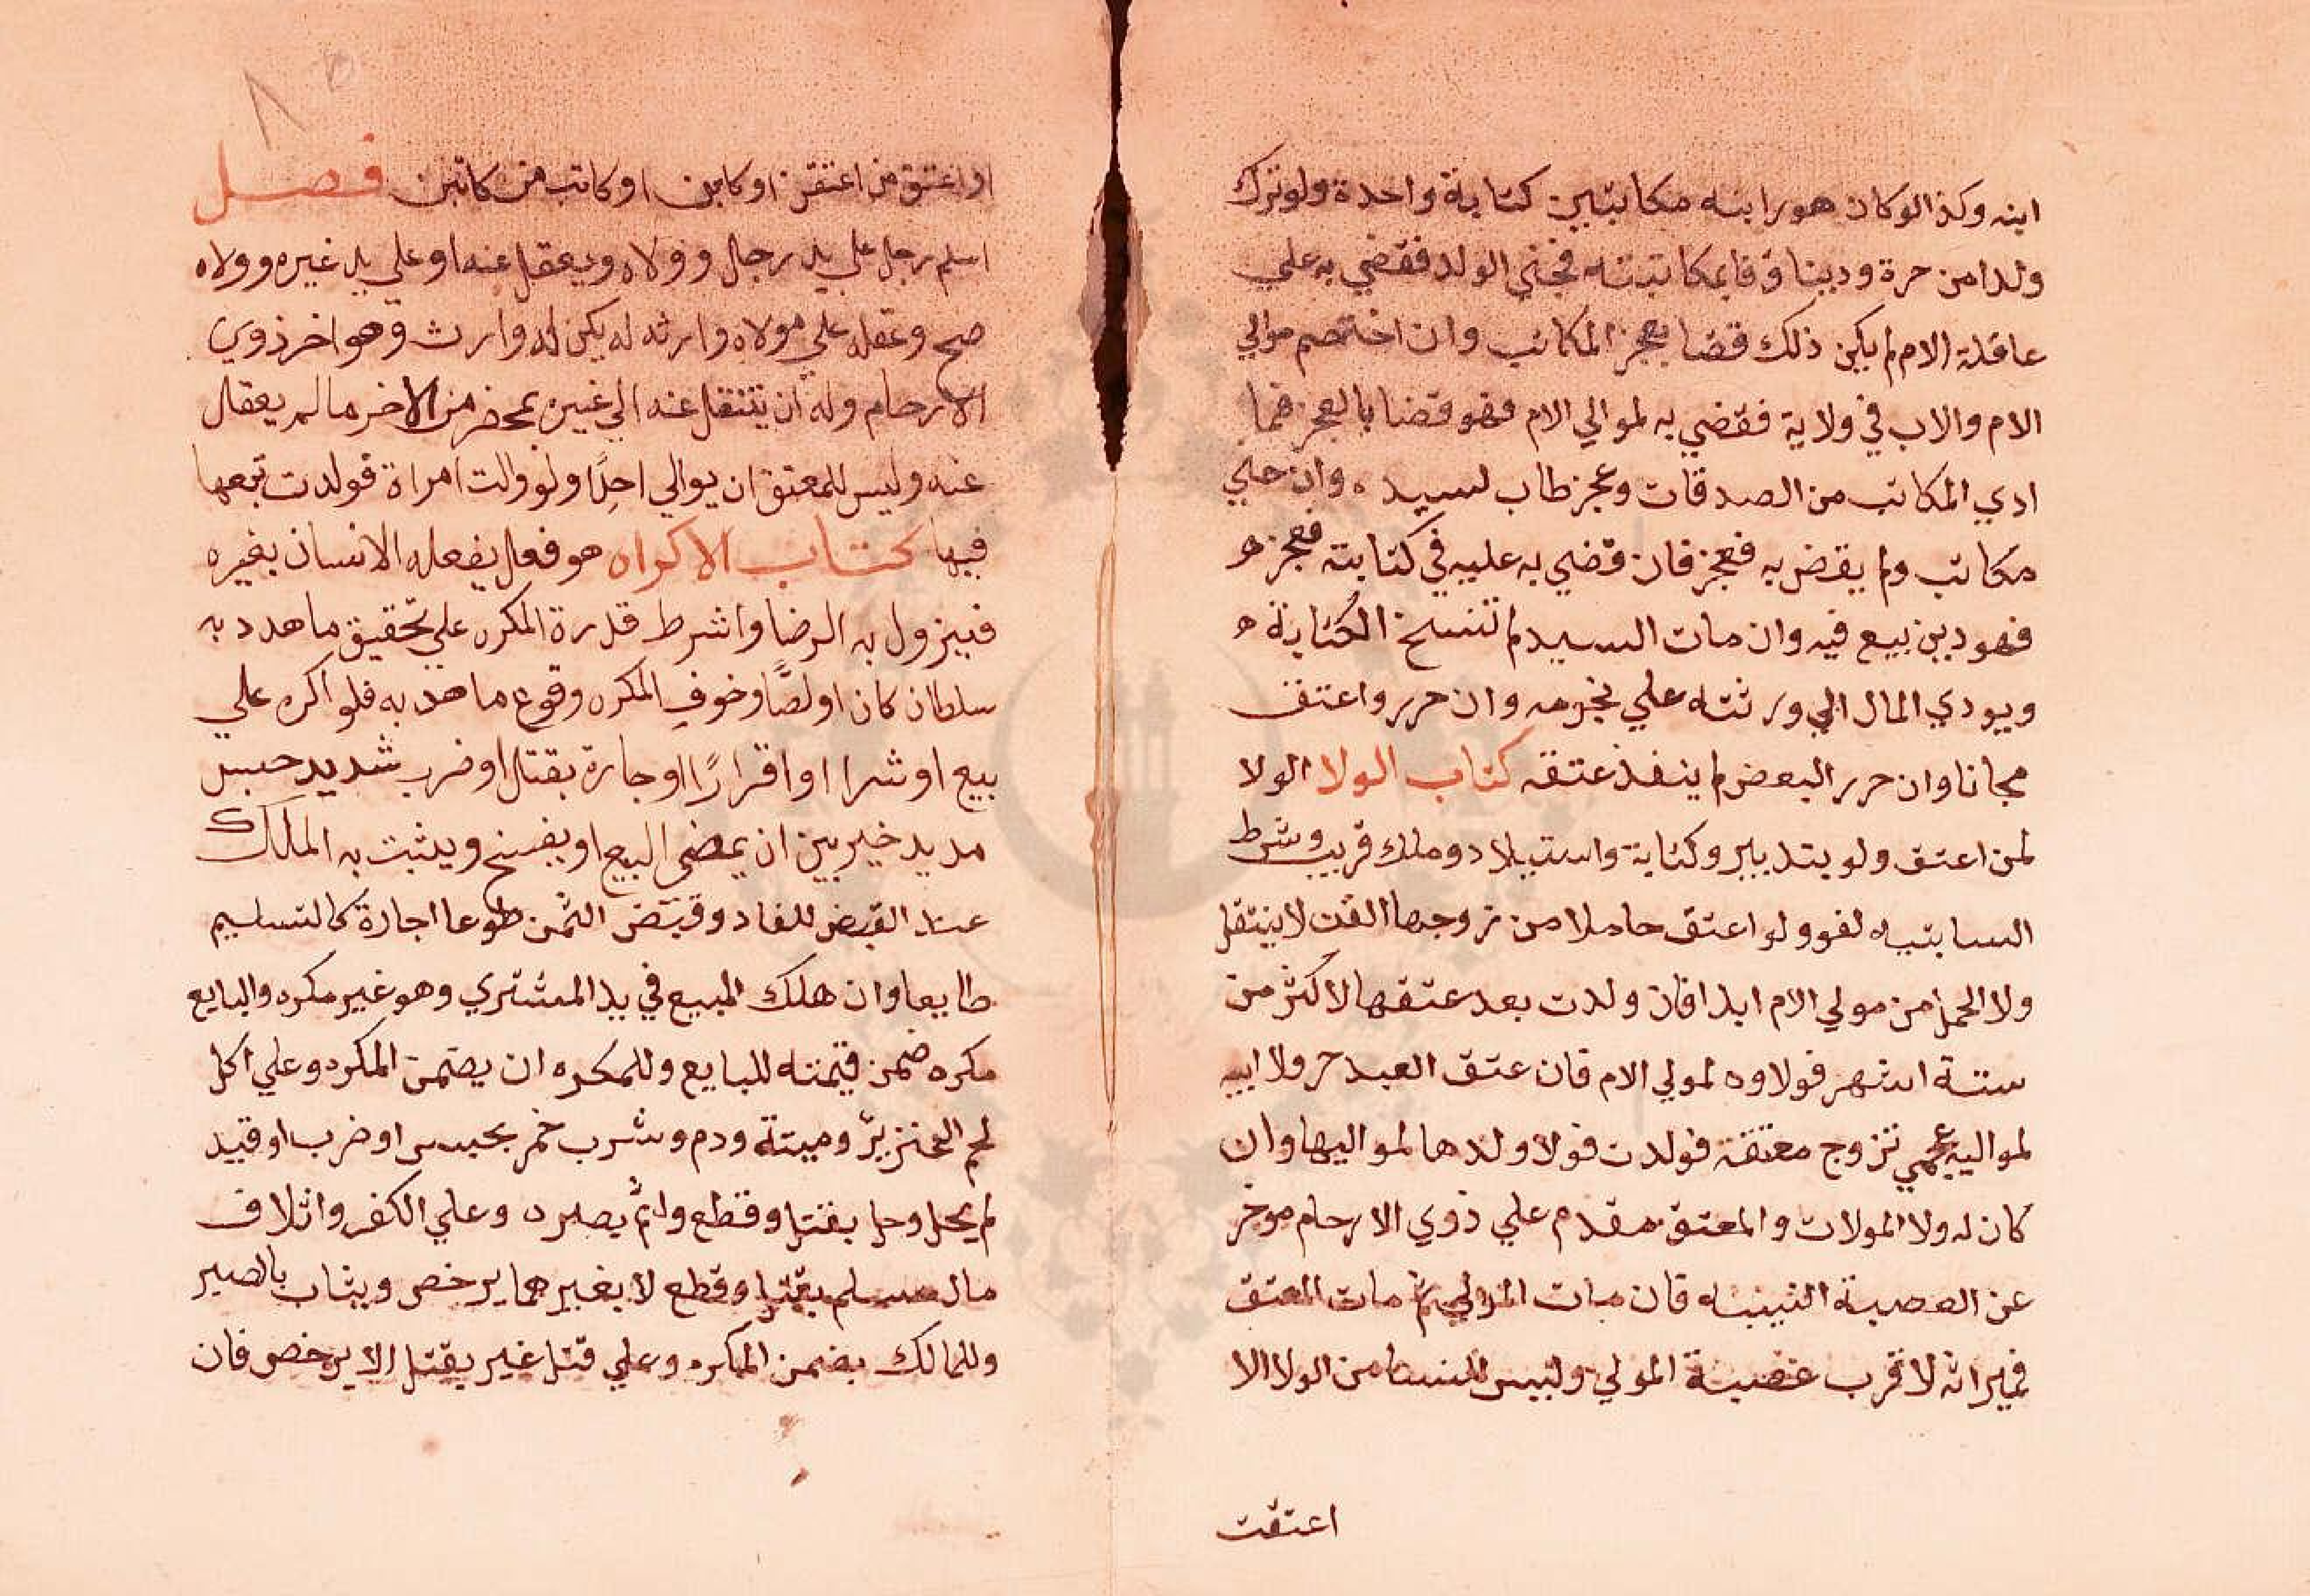 ابنه وكذا لو كان هو وابنه مكاتبين كتابة واحدة ولو ترك
ولدا من حرة ودينا وفا بمكاتبته فجني الولد فقضي به علي
عاقلة الام لم يكن ذلك قضا بعجز المكاتب وان اختصم موالي
الام والاب في ولاية فقضي به لموالي الام فهو قضا بالعجز فما
ادي المكاتب من الصدقات وعجز طاب لسيده وان جني
مكاتب ولم يقض به فعجز فان قضي به عليه في كتابته فعجز هو
فهو دين بيع فيه وان مات السيد لم تنسخ الكتابة ه
ويودي المال الي ورثته علي نجومه وان حرر واعتق
مجانا وان حرر البعض لم ينفذ عتقه كتاب الولا الولا
لمن اعتق ولو بتدبير وكتابة واستيلاد وملك قريب وشرط
السايبه لغو ولو اعتق حاملا من زوجها القن لا ينتقل
ولا الحمل من مولي الام ابدا فان ولدت بعد عتقها لاكثر من
ستة اشهر فولاوه لمولي الام فان عتق العبد جر ولا ابيه
لمواليه عجمي تزوج معتقة فولدت فولا ولدها لمواليها وان
كان له ولا المولات والمعتق مقدم علي ذوي الارحام موخر
عن العصبة النسبيه فان مات المولي ثم مات المعتق
فميراثه لاقرب عصبة المولي وليس للنسا من الولا الا
اعتقت
او اعتق من اعتقن او كاتبن او كاتب من كاتبن فصل
اسلم رجل علي يد رجل وولاه ويعقل عنه او علي يد غيره وولاه
صح وعقله علي مولاه وارثه له يكن له وارث وهو اخر ذوي
الارحام وله ان ينتقل عنه الي غيره بمحضر من الاخر ما لم يعقل
عنه وليس للمعتق ان يوالي احدا ولو والت امراة فولدت تبعها
فيها كتاب الاكراه هو فعل يفعله الانسان بغيره
فيزول به الرضا واشرط قدرة المكره علي تحقيق ما هدد به
سلطان كان او لصًا وخوف المكره وقوع ما هد به فلو اكره علي
بيع او شرا او اقرارًا او جارة بقتل او ضرب شديد حبس
مديد خير بين ان يمضي البيع او يفسخ ويثبت به الملك
عند القبض للفاد وقبض الثمن طوعا اجارة كالتسليم
طايعا وان هلك المبيع في يد المشتري وهو غير مكره والبايع
مكره ضمن قيمته للبايع وللمكره ان يضمن المكره وعلي اكل
لحم الخنزير وميتة ودم وشرب خمر بحبس او ضرب او قيد
لم يحل وحل بقتل وقطع واثم بصبره وعلي الكفر واتلاف
مال مسلم بقتل وقطع لا بغيرهما يرخص ويثاب بالصبر
وللمالك يضمن المكره وعلي قتل غير يقتل لا يرخص فان